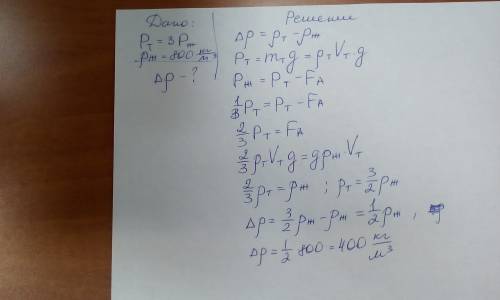 Дано:
Pт = 3Pж
ρж = 800 кг/м³
Δρ - ?
Решение
Δρ = ρт - ρж
Pт = mт g = ρт Vт g
Pж = Pт - FА
1/3 Pт = Pт - FА
2/3 Pт = FА
2/3 ρт Vт g = gρж Vт
2/3 ρт = ρж ; ρт = 3/2 ρж
Δρ = 3/2 ρж - ρж = 1/2 ρж ,
Δρ = 1/2 800 = 400 кг/м³